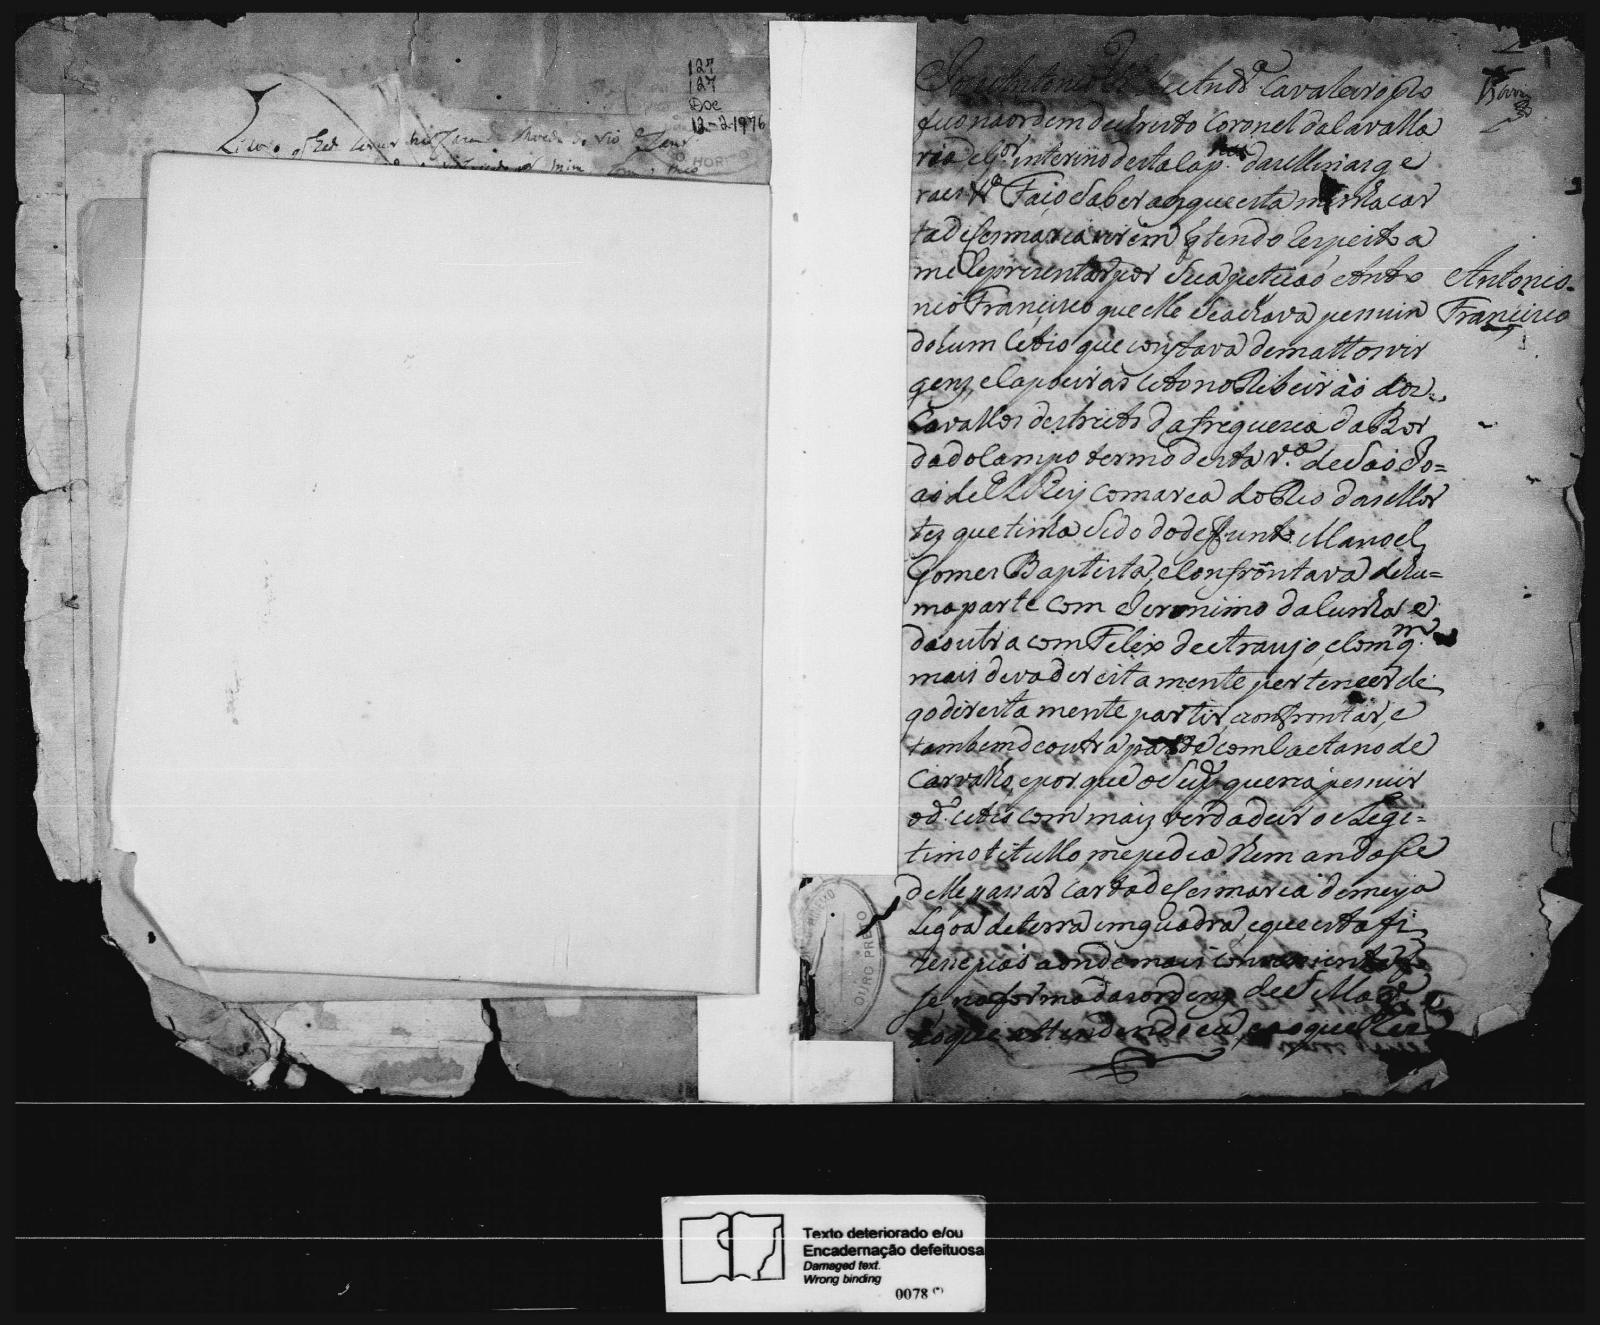 127
127
Doc
12-2-1976
Cavaleiro pro
fuo na ordem de christo Coronel da Cavalla
ria, e G.or interino desta Cap.nia das Minas ge
raes &.a Faço saber aos que esta minha car
ta de Sesmaria virem q̃ tendo respeito a
me Reprezentar por sua petiçaõ Anto
nio Francisco que elle se achava possuin
do hum citio que constava de mattos vir
gens, e Capoeiras cito no Ribeiraõ dos
Cavallos destricto da freguesia da Bor
da do Campo termo desta V.a de Saõ Jo=
aõ de El Rey comarca do Rio das Mor
tes que tinha sido do defunto Manoel
Gomes Baptista, e Confrontava de hu=
ma parte com Jeronimo da Cunha e
da outra com Felix de Araujo, e Com q.m
mais deva dereitamente pertencer di
go direitamente partir, e confrontar, e
tambem de outra parte com Caetano de
Carvalho, e por que o Sup.e queria possuir
o d.o citio com mais verdadeiro e Legi=
timo titullo, me pedia lhe mandasse
delle passar carta de Sesmaria de meya
Legoa de terra em quadra, e que esta fi
zesse piaõ aonde mais conveniente f
se na forma das ordens de S Mag.e
ao que attendendo eu, e ao que
Antonio
Francisco
OURO PRETO
Texto deteriorado e/ou
Encadernação defeituosa
Damaged text.
Wrong binding
0078